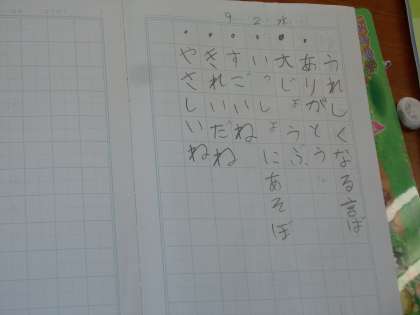 9 2 水
うれしくなる言ば
・ありがとう
・大じょうぶ
・いっしょにあそぼ
・すごいね
・きれいだね
・やさしいね